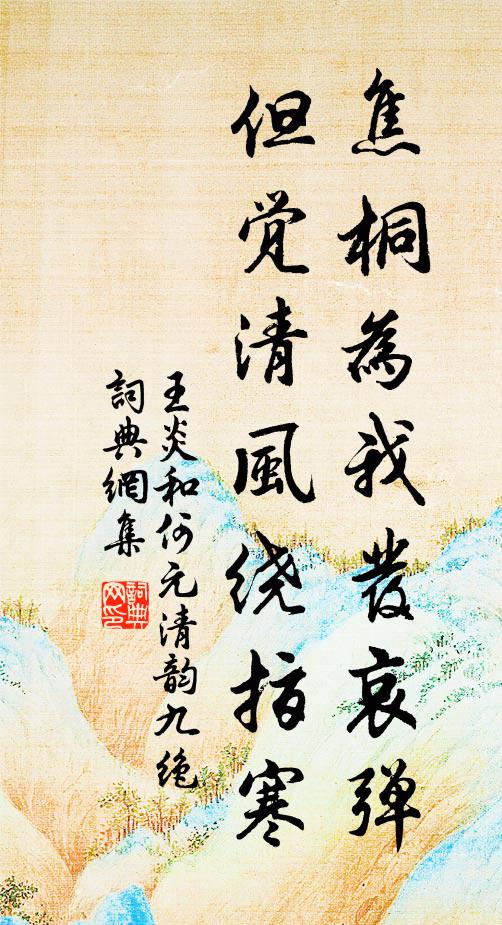 焦桐為我發哀弹
但觉清風绕指寒
王炎和何元清韵九绝
詞典網集
詞典网印